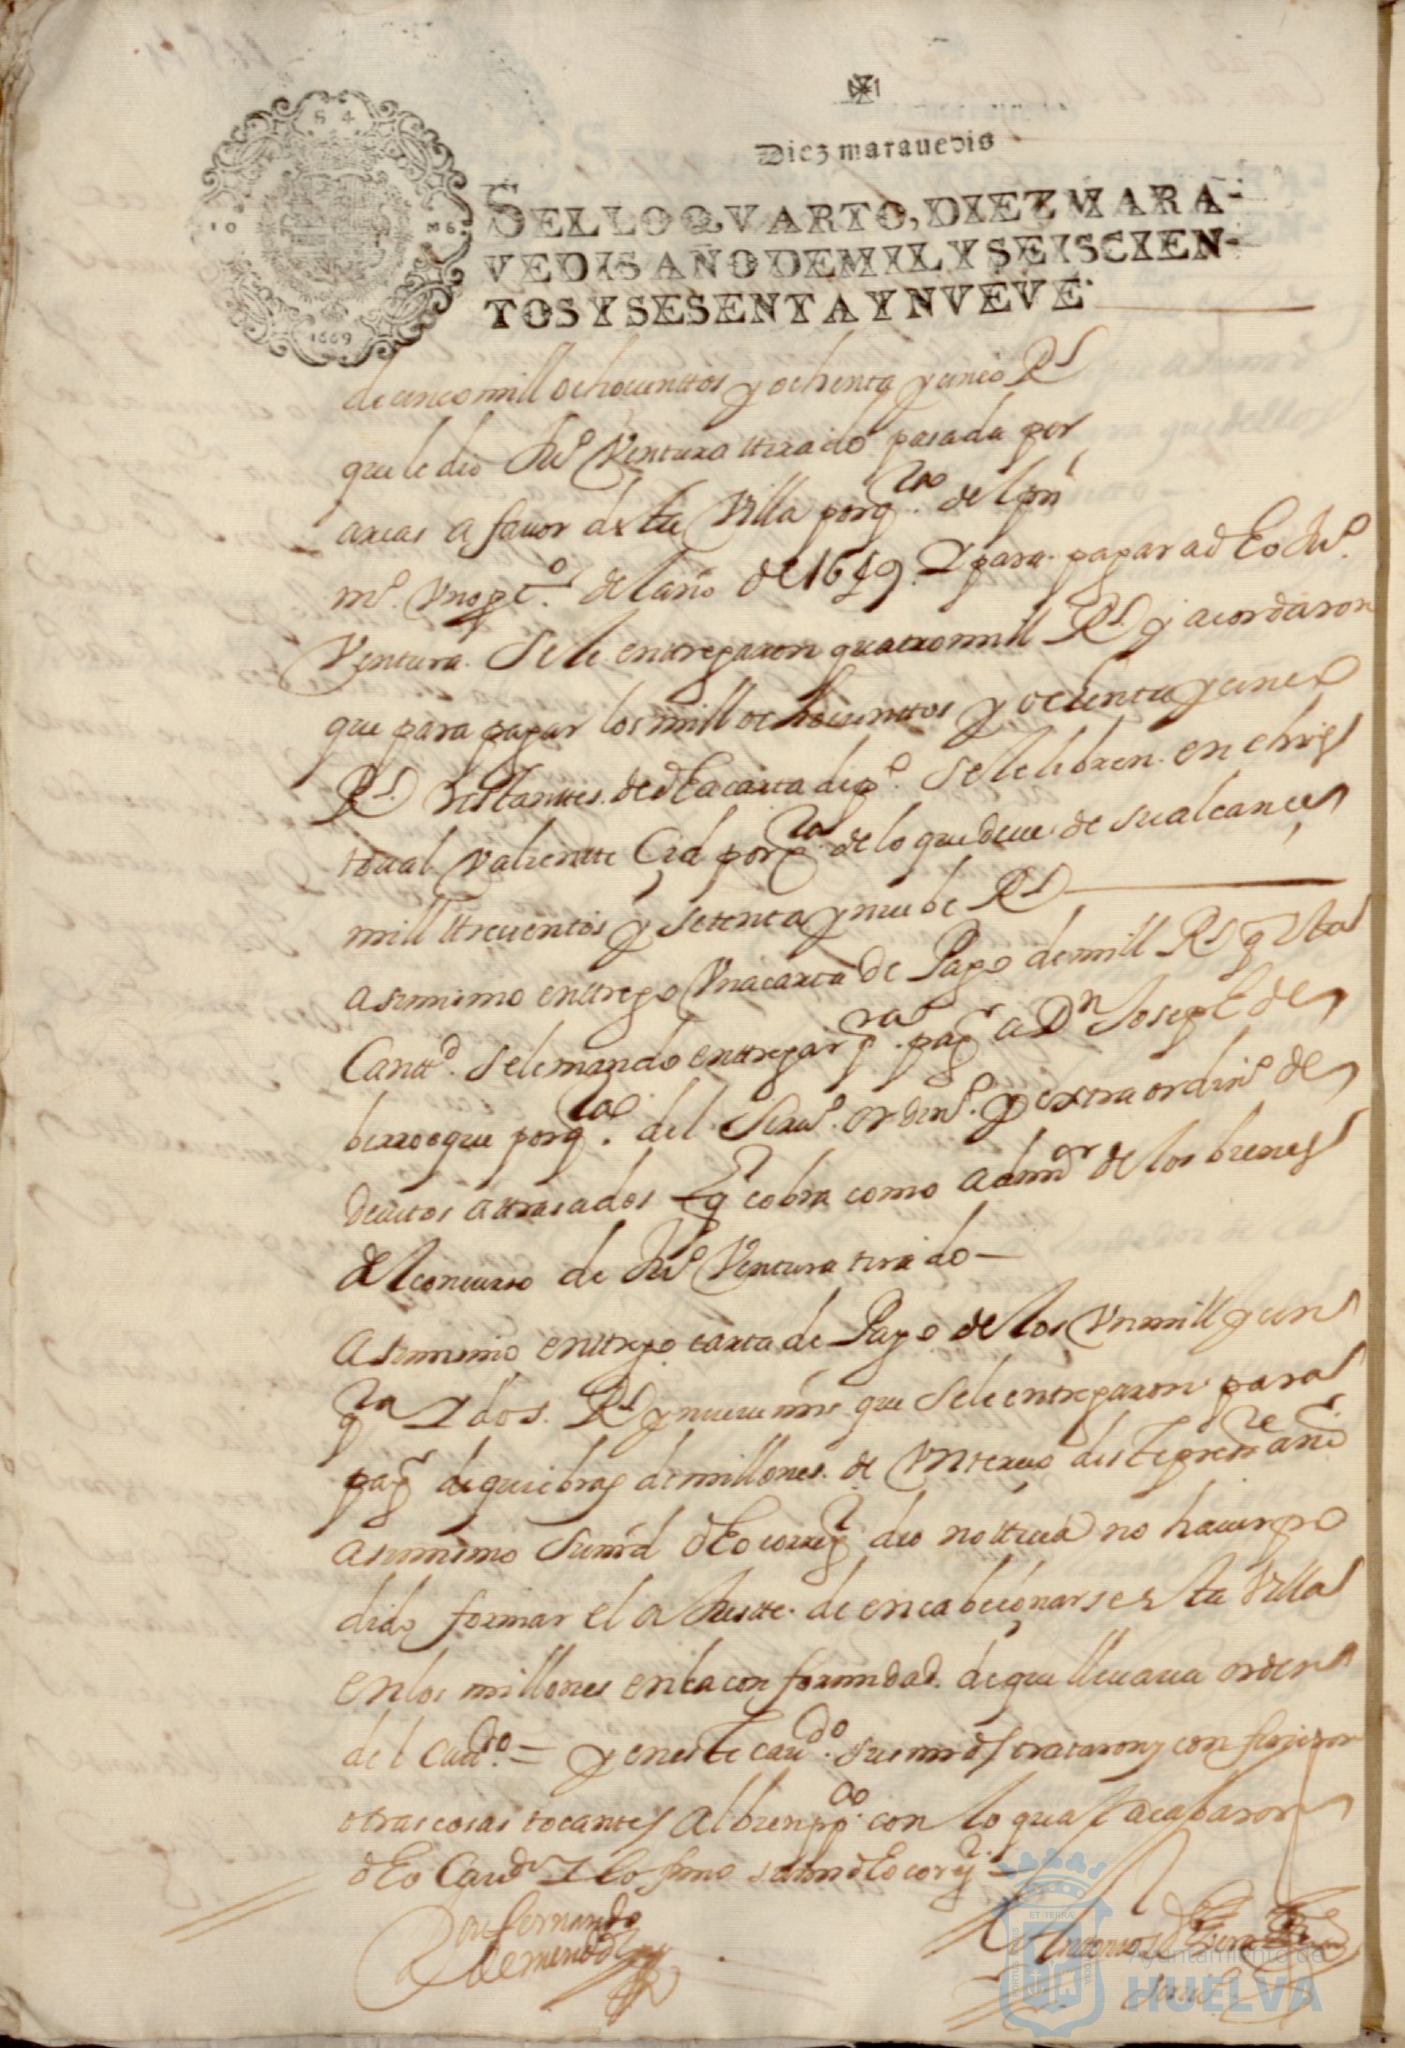 Diez maravedis
SELLO QVARTO, DIEZ MARA-
VEDIS AÑO DE MIL Y SEISCIEN-
TOS Y SESENTA Y NVEVE.
1669
de cinco mill ochocienttos y ochenta y cinco Rs
que le dio Juº Ventura ttirado pasada por
arcas a fauor desta Villa por qta del pri
mº. Vno por ctº. del año de 1649. Y para pagar a dho Juº.
Ventura. Se le enttregaron quatro mill Rs. y acordaron
que para pagar los mill ochocienttos y ochenta y cinco
Rs. restanttes. de dha carta de pº. se le libren. en chris
toual Valientte Cid por qta de lo que deue de su alcance
mill ttrecientos y setenta y nuebe Rs
asimimo enttrego Vna carta de Pago de mill Rs q esta
Canttd. se le mando enttregar pra. pagr a Dn Joseph de
berroeque por qta. del seruº. ordinº. y extraordinº de
deuitos attrasados q cobra como admdor de los bienes
del concurso de Juº Ventura tirado
asimimo enttrego carta de Pago de los Vn mill y cin
qta Y dos. Rs y nueue mrs que se le entregaron para
pagr de quiebras de millones. de Vn tercio deste presente año
asimimo su md dho correxr dio notticia no hauer po
dido formar el aJustte. de encabeçonarse esta Villa
en los millones en la conformidad. de que lleuaua orden
del cauºdo. = y en este caudo. sus mrds trataron y confirieron
otras cosas tocantes al bien ppco. con lo qual acabaron
dho Caudo Y lo firmo su md dho corexr. =
Don fernando
de mendoza
Antonio de
Scriuº
Ayuntamiento de
HUELVA